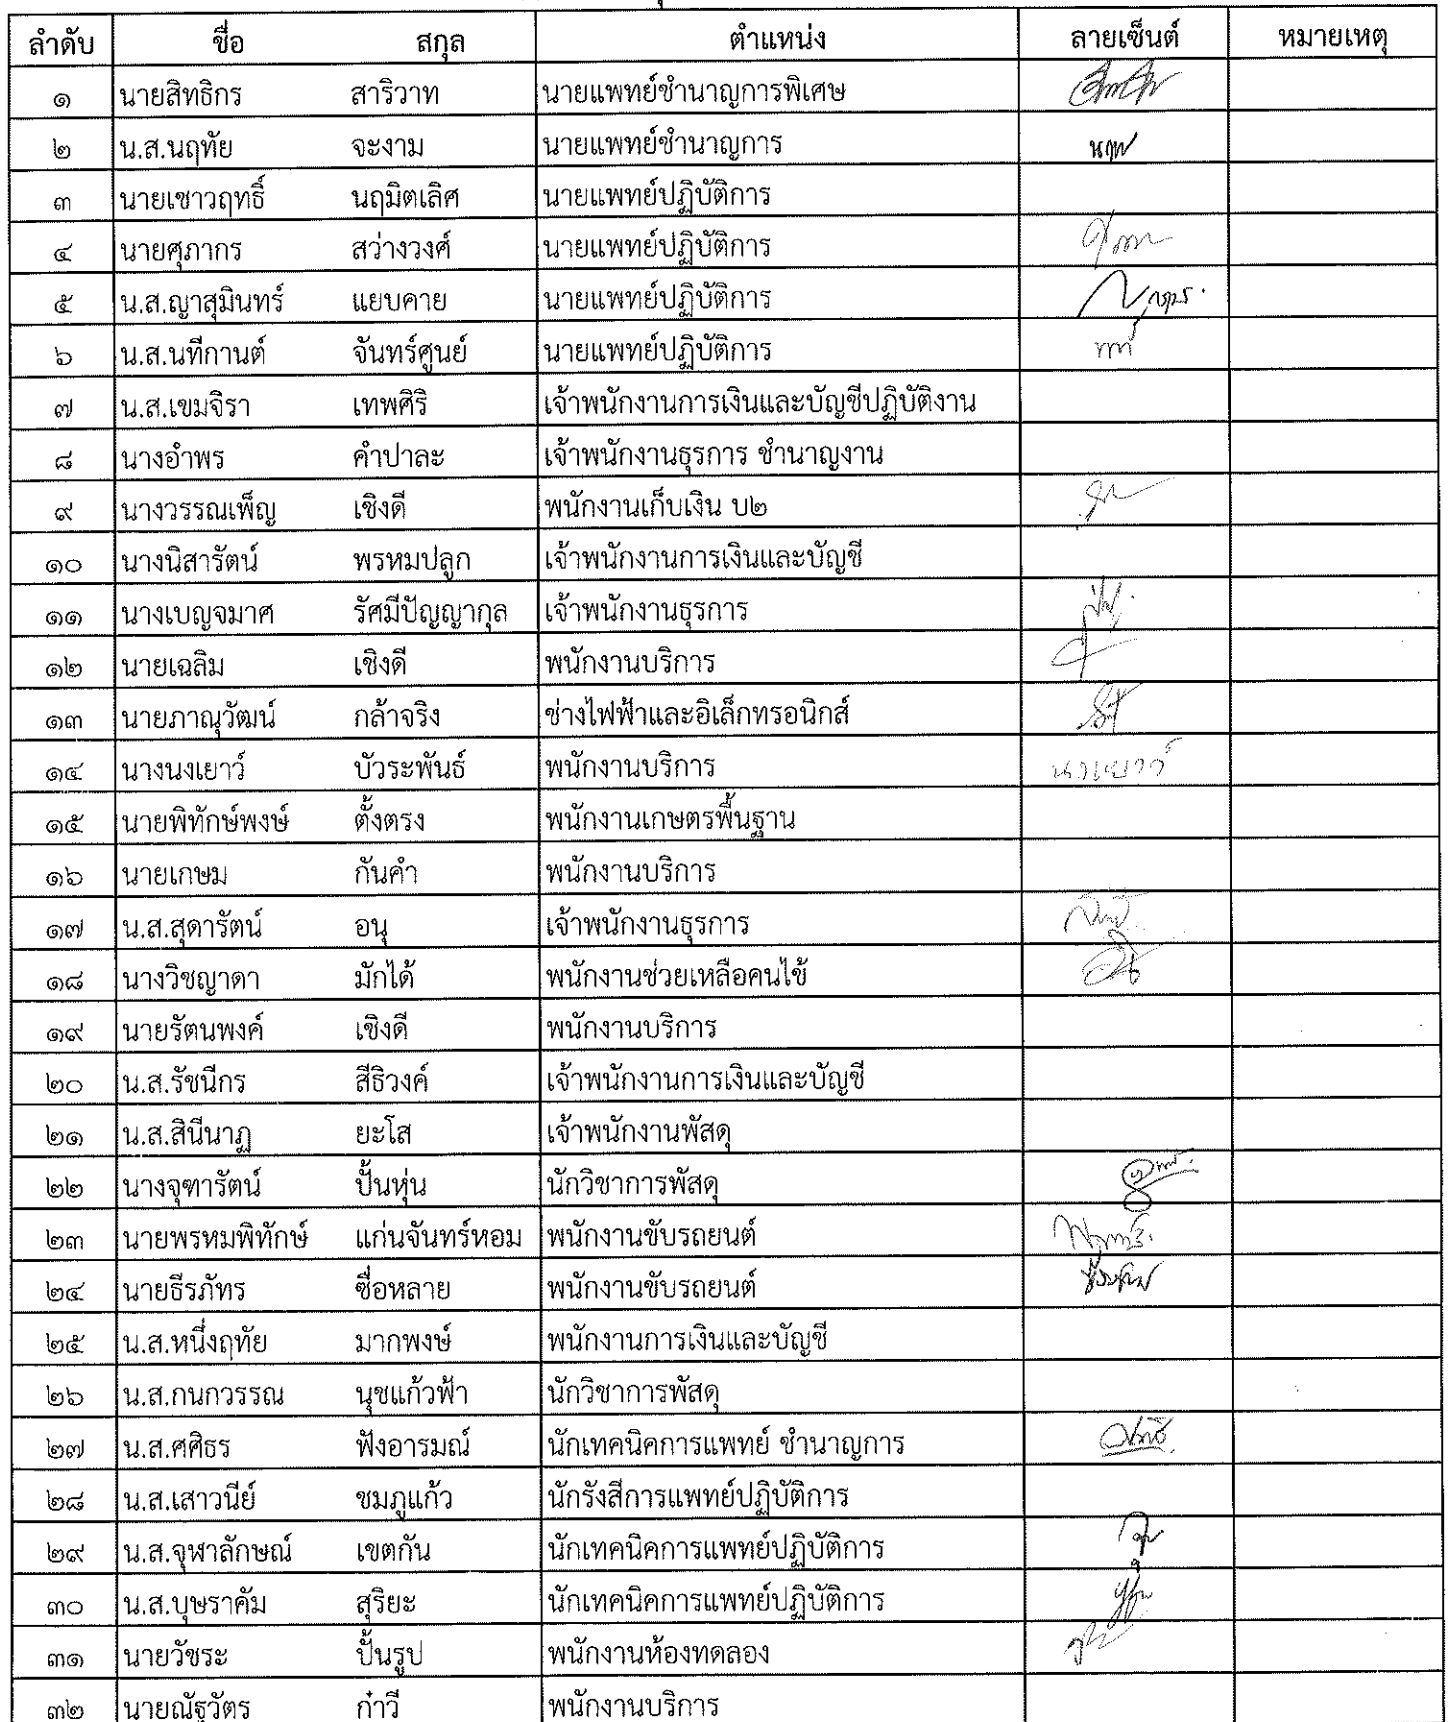 ลำดับ ชื่อ สกุล ตำแหน่ง ลายเซ็นต์ หมายเหตุ
๑ นายสิทธิกร สาริวาท นายแพทย์ชำนาญการพิเศษ
๒ น.ส.นฤทัย จะงาม นายแพทย์ชำนาญการ
๓ นายเชาวฤทธิ์ นฤมิตเลิศ นายแพทย์ปฏิบัติการ
๔ นายศุภากร สว่างวงศ์ นายแพทย์ปฏิบัติการ
๕ น.ส.ญาสุมินทร์ แยบคาย นายแพทย์ปฏิบัติการ
๖ น.ส.นทีกานต์ จันทร์ศูนย์ นายแพทย์ปฏิบัติการ
๗ น.ส.เขมจิรา เทพศิริ เจ้าพนักงานการเงินและบัญชีปฏิบัติงาน
๘ นางอำพร คำปาละ เจ้าพนักงานธุรการ ชำนาญงาน
๙ นางวรรณเพ็ญ เชิงดี พนักงานเก็บเงิน บ๒
๑๐ นางนิสารัตน์ พรหมปลูก เจ้าพนักงานการเงินและบัญชี
๑๑ นางเบญจมาศ รัศมีปัญญากุล เจ้าพนักงานธุรการ
๑๒ นายเฉลิม เชิงดี พนักงานบริการ
๑๓ นายภาณุวัฒน์ กล้าจริง ช่างไฟฟ้าและอิเล็กทรอนิกส์
๑๔ นางนงเยาว์ บัวระพันธ์ พนักงานบริการ นงเยาว์
๑๕ นายพิทักษ์พงษ์ ตั้งตรง พนักงานเกษตรพื้นฐาน
๑๖ นายเกษม กันคำ พนักงานบริการ
๑๗ น.ส.สุดารัตน์ อนุ เจ้าพนักงานธุรการ
๑๘ นางวิชญาดา มักได้ พนักงานช่วยเหลือคนไข้
๑๙ นายรัตนพงค์ เชิงดี พนักงานบริการ
๒๐ น.ส.รัชนีกร สีธิวงค์ เจ้าพนักงานการเงินและบัญชี
๒๑ น.ส.สินีนาฏ ยะโส เจ้าพนักงานพัสดุ
๒๒ นางจุฑารัตน์ ปั้นหุ่น นักวิชาการพัสดุ
๒๓ นายพรหมพิทักษ์ แก่นจันทร์หอม พนักงานขับรถยนต์
๒๔ นายธีรภัทร ซื่อหลาย พนักงานขับรถยนต์
๒๕ น.ส.หนึ่งฤทัย มากพงษ์ พนักงานการเงินและบัญชี
๒๖ น.ส.กนกวรรณ นุชแก้วฟ้า นักวิชาการพัสดุ
๒๗ น.ส.ศศิธร ฟังอารมณ์ นักเทคนิคการแพทย์ ชำนาญการ
๒๘ น.ส.เสาวนีย์ ชมภูแก้ว นักรังสีการแพทย์ปฏิบัติการ
๒๙ น.ส.จุฬาลักษณ์ เขตกัน นักเทคนิคการแพทย์ปฏิบัติการ
๓๐ น.ส.บุษราคัม สุริยะ นักเทคนิคการแพทย์ปฏิบัติการ
๓๑ นายวัชระ ปั้นรูป พนักงานห้องทดลอง
๓๒ นายณัฐวัตร ก๋าวี พนักงานบริการ